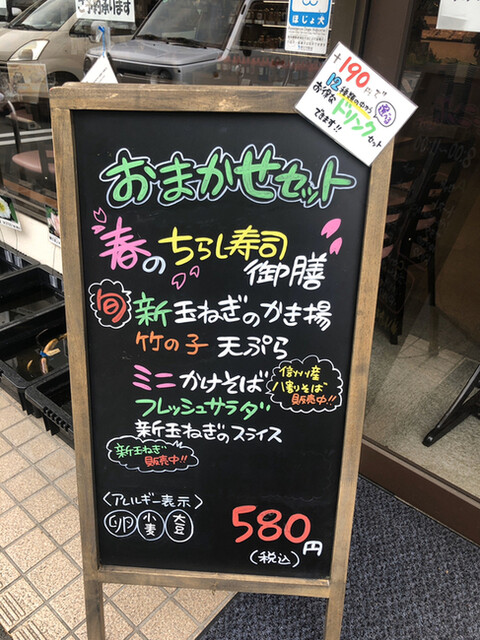 ほじょ犬
+190円で
12種類の中から選べる
お得なドリンクセット
できます!!
おまかせセット
春のちらし寿司
御膳
旬 新玉ねぎのかき揚
竹の子 天ぷら
ミニかけそば
信州産
八割そば
販売中!!
フレッシュサラダ
新玉ねぎのスライス
新玉ねぎ
販売中!!
〈アレルギー表示〉
卵 小麦 大豆
580円
(税込)